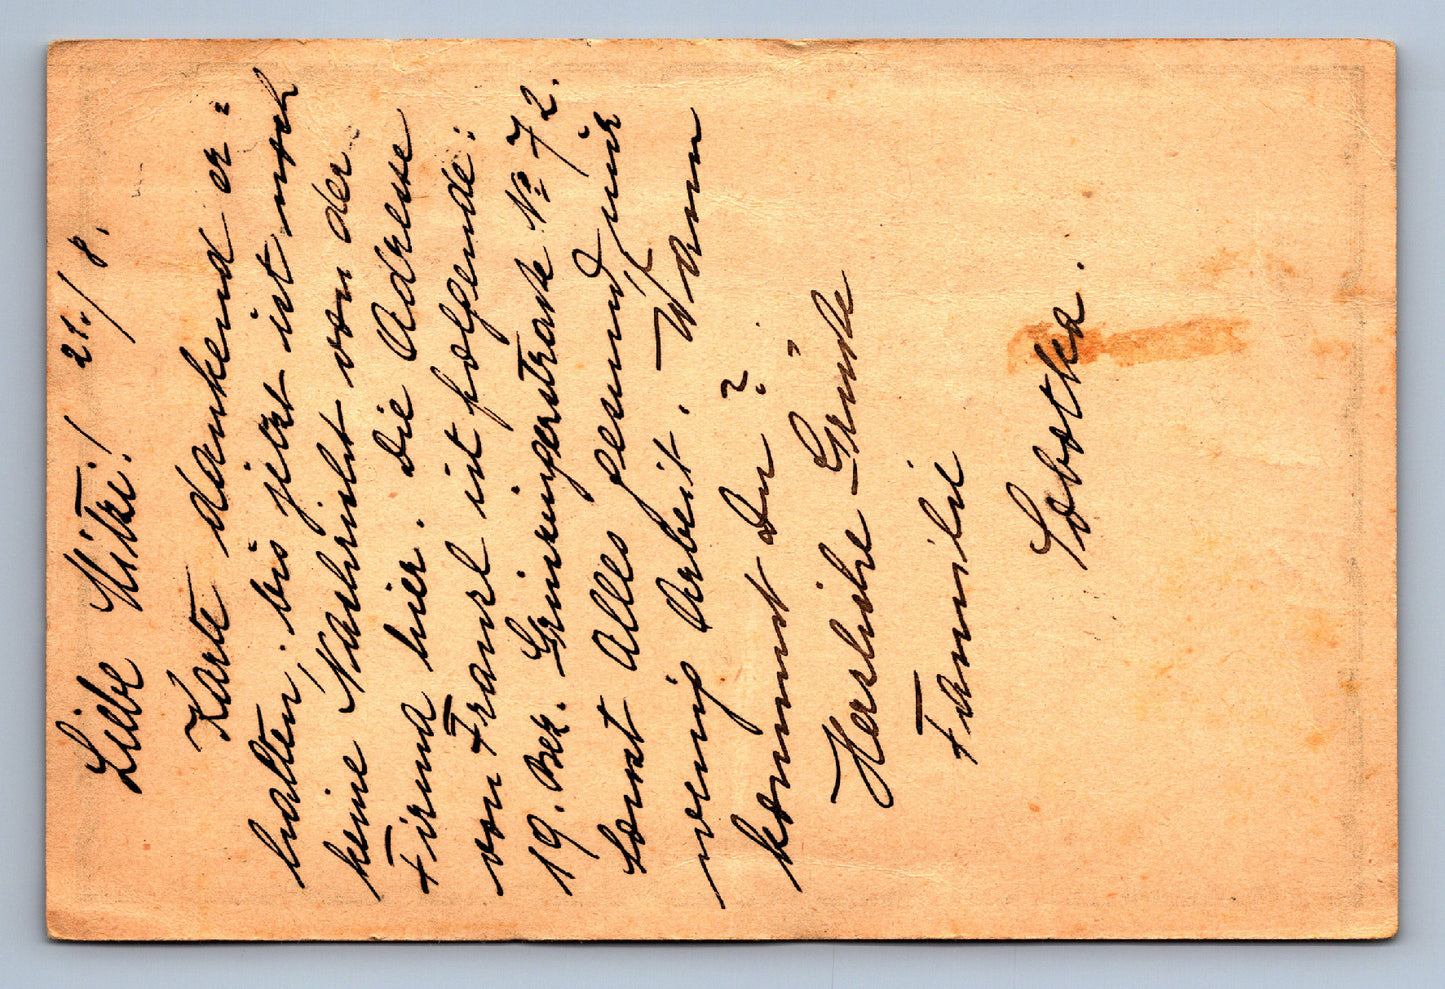 Liebe Mitzi! 21./8.
Karte dankend er=
halten; bis jetzt ist noch
keine Nachricht von der
Firma hier. Die Adresse
von Franzl ist folgende:
19. Bez. Grinzingerstraße No 72.
Sonst Alles gesund, nur
wenig Arbeit. Wann
kommst Du?
Herzliche Grüße
Familie
Sobotka.